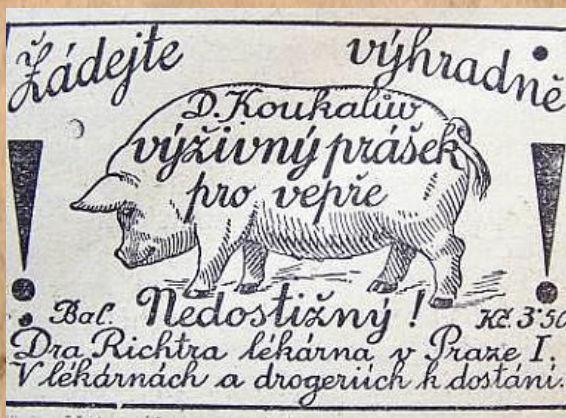 Žádejte výhradně
D. Koukalův
výživný prášek
pro vepře
! !
Bal. Nedostižný! Kč. 3·50
Dra Richtra lékárna v Praze I.
V lékárnách a drogeriích k dostání.